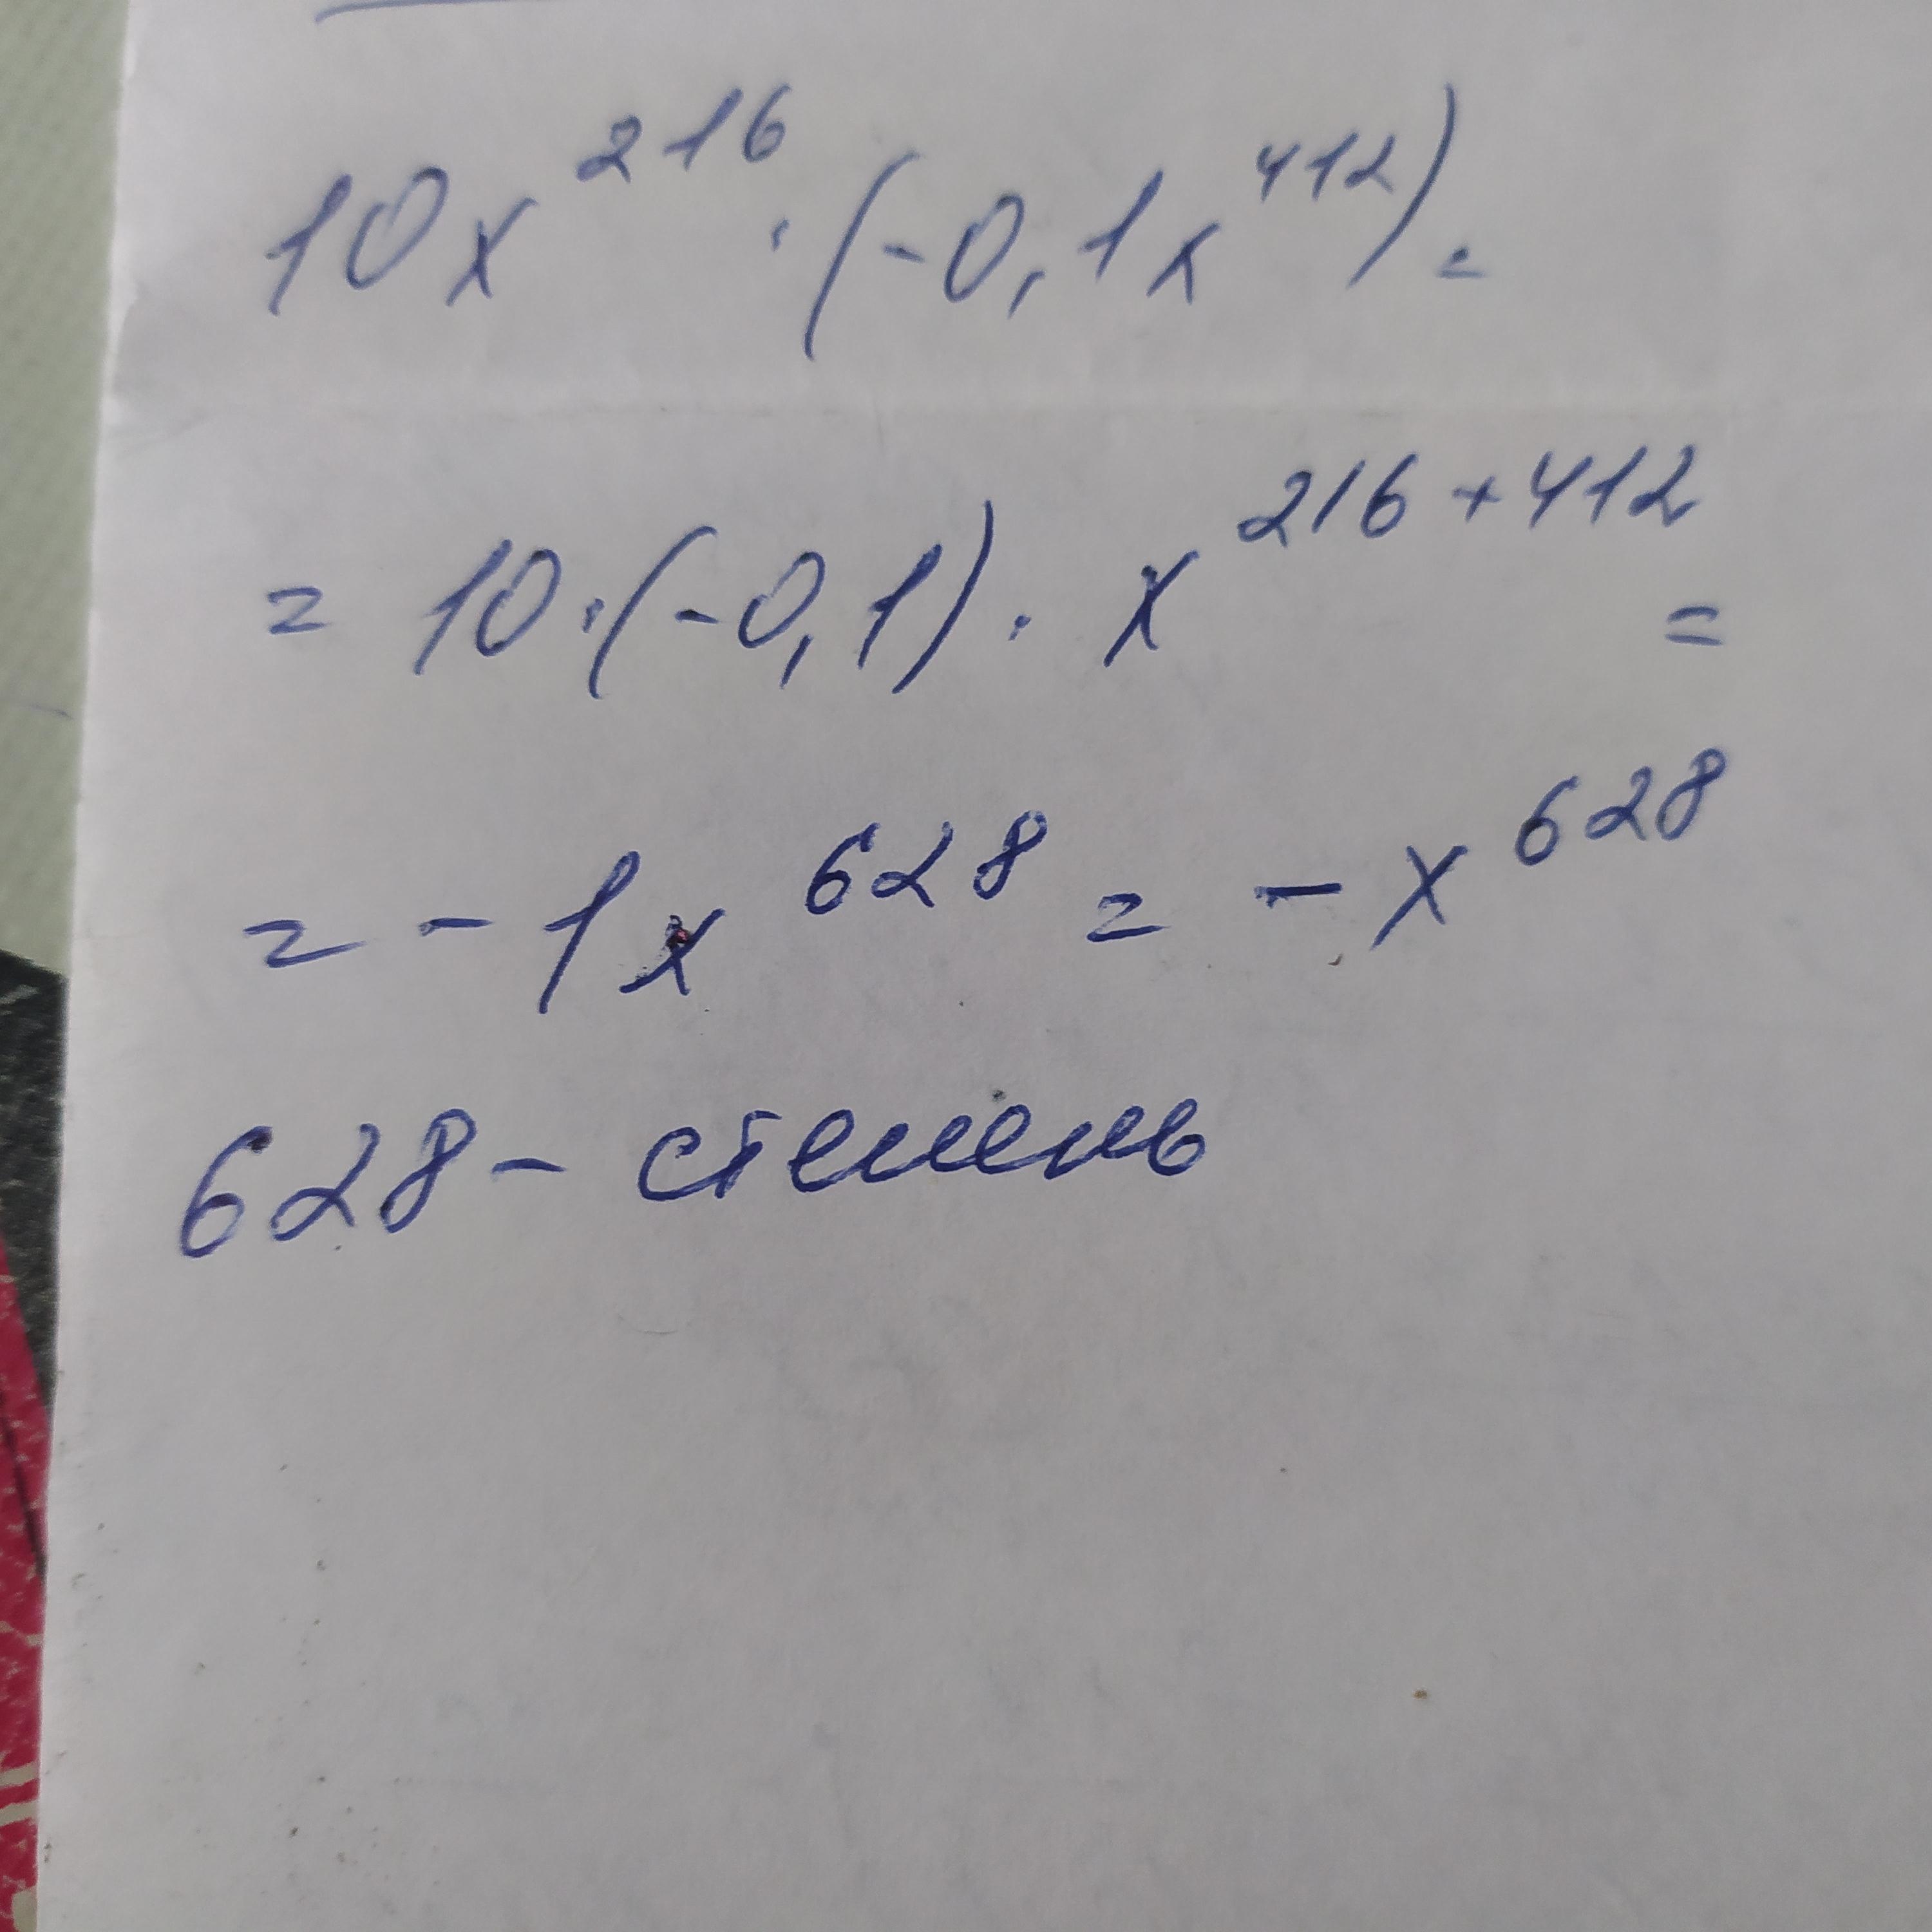 10x²¹⁶ · (-0,1x⁴¹²) =
= 10 · (-0,1) · x²¹⁶⁺⁴¹² =
= - 1x⁶²⁸ = - x⁶²⁸
628 - степень